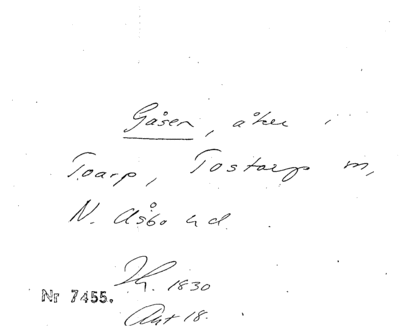 Gåsen, åker i
Toarp, Tostarp m,
N. Åsbo hd.
1830
Nr 7455.
Akt 18.